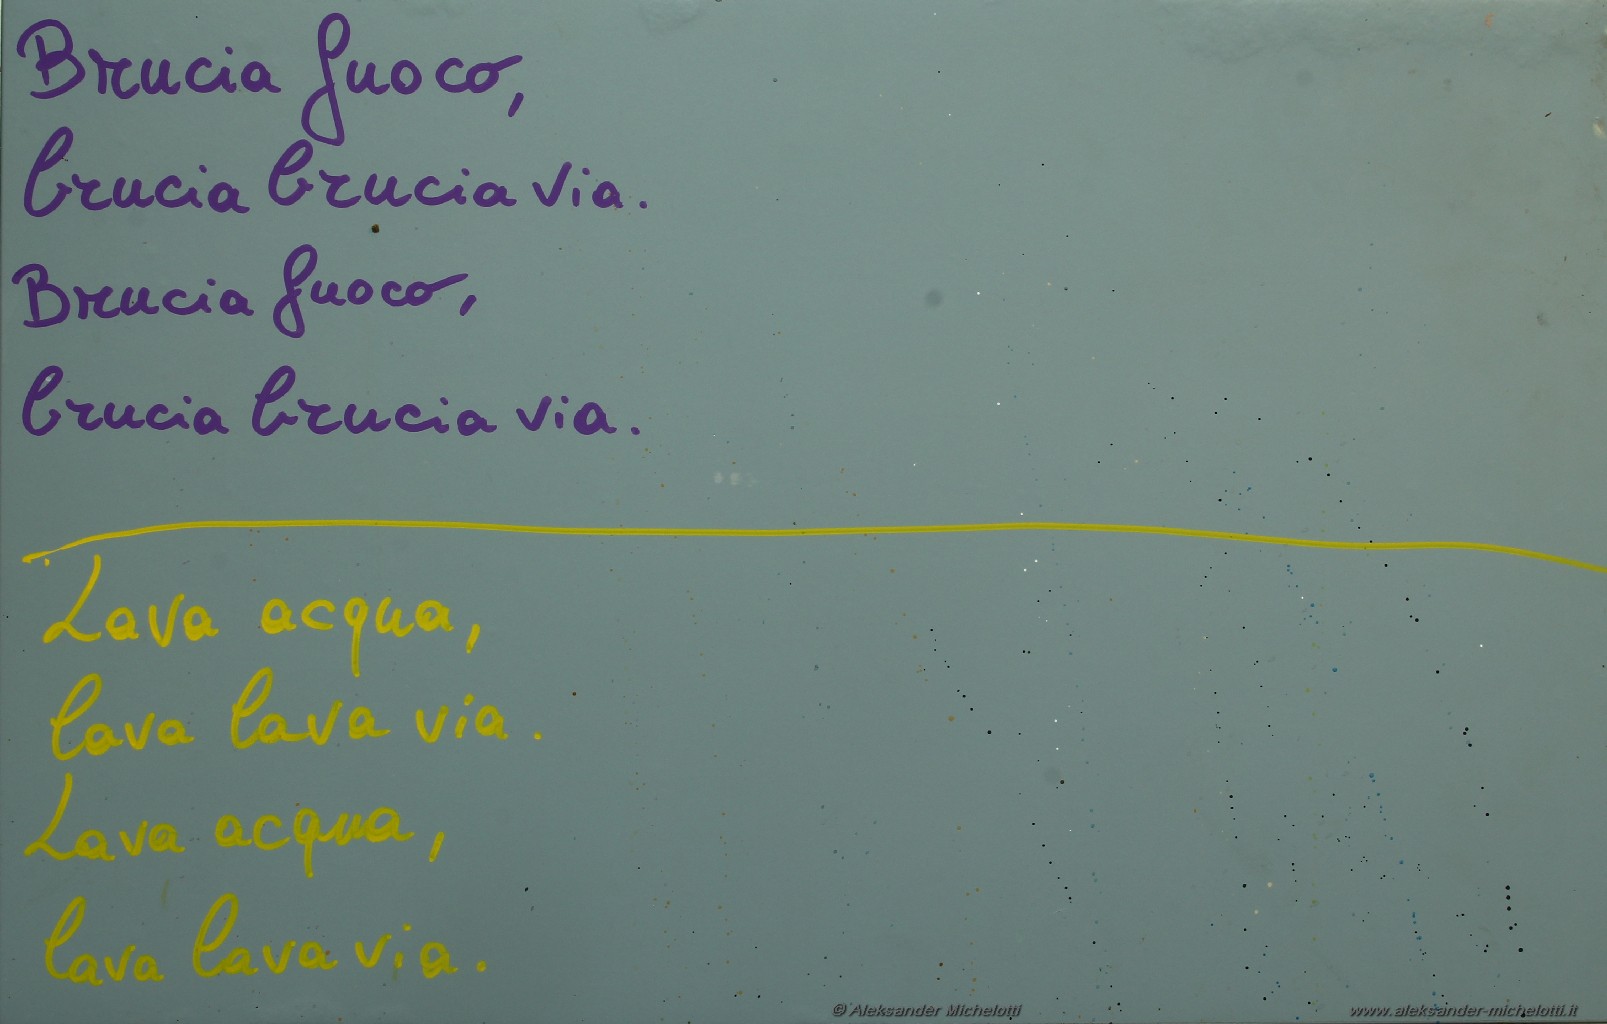 Brucia fuoco,
brucia brucia via.
Brucia fuoco,
brucia brucia via.
Lava acqua,
lava lava via.
Lava acqua,
lava lava via.
© Aleksander Michelotti
www.aleksander-michelotti.it